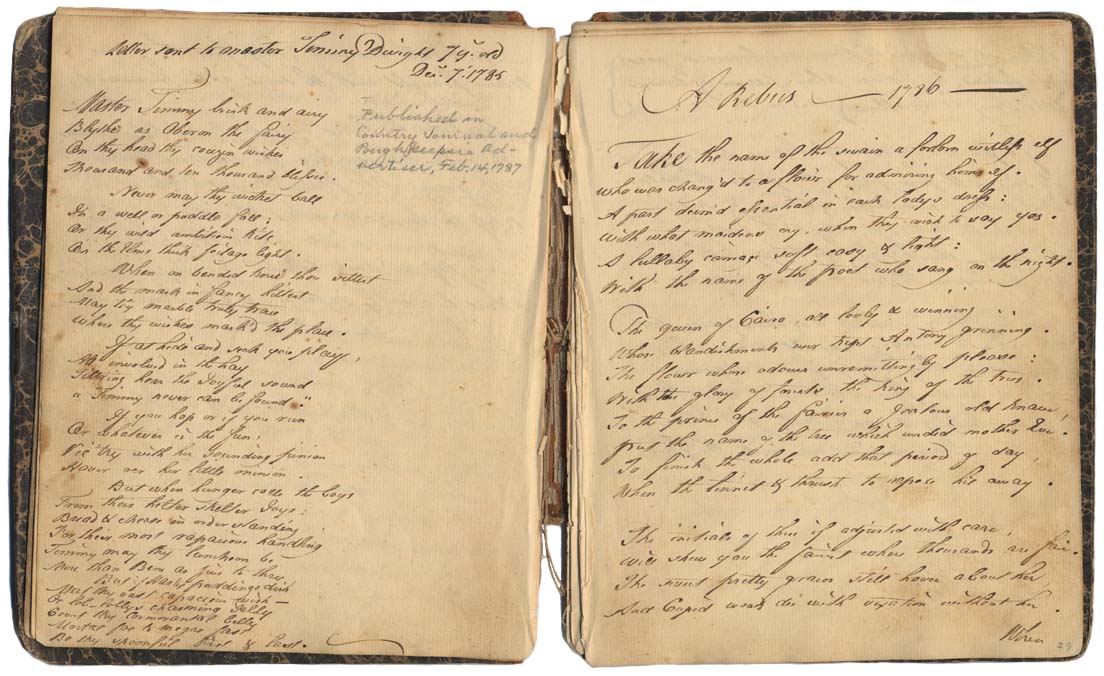 Letter sent to master Timmy Dwight 7 yrs. old
Decr. 7. 1785
Master Timmy brisk and airy
Blythe as Oberon the fairy
On thy head thy cousin wishes
Thousand and ten thousand blisses.
Never may thy wicket ball
In a well or puddle fall:
Or thy wild ambitious kite
On the Elms thick foilage light.
When on bended knee thou sittest
And the mark in fancy hittest
May thy marble truly trace
Where thy wishes mark'd the place.
If at hide and seek you play,
All involved in the hay
Tittering hear the Joyful sound
"Timmy never can be found."
If you hop or if you run
Or whatever is the fun;
Vict'ry with her sounding pinion
Hover oer her little minion.
But when hunger calls the boys
From their helter skelter Joys:
Bread & cheese in order standing
For their most rapacious handling
Timmy may thy luncheon be
More than Bens as five to three
But if hasty pudding's dish
Meet thy vast capacious wish—
Or lob-lolly's charming Jelly
Court thy cormorantal belly
Mortal foe to megre fast
Be thy spoonful first & last.
Published in
Country Journal and
Poughkeepsie Ad-
vertiser, Feb. 14, 1787
A Rebus — 1786 —
Take the name of the swain a forlorn witless elf
Who was chang'd to a flow'r for admiring himself.
A part deem'd essential in each lady's dress:
With what maidens cry, when they wish to say yes.
A lullaby carriage soft cosy & light:
With the name of the Poet who sang on the night.
The queen of Cairo, all lovely & winning
Whose blandishments ever kept Antony grinning.
The flow'r whose odours unremittingly please:
With the glory of forests the King of the trees.
To the prince of the fairies a Jealous old knave,
put the name of the tree which undid mother Eve.
To finish the whole add that period of day,
When the linnet & thrush to repose hie away.
The initials of these if adjusted with care,
Will shew you the fairest where thousands are fair.
The sweet pretty graces still hover about her
And Cupid would die with vexation without her.
When
29